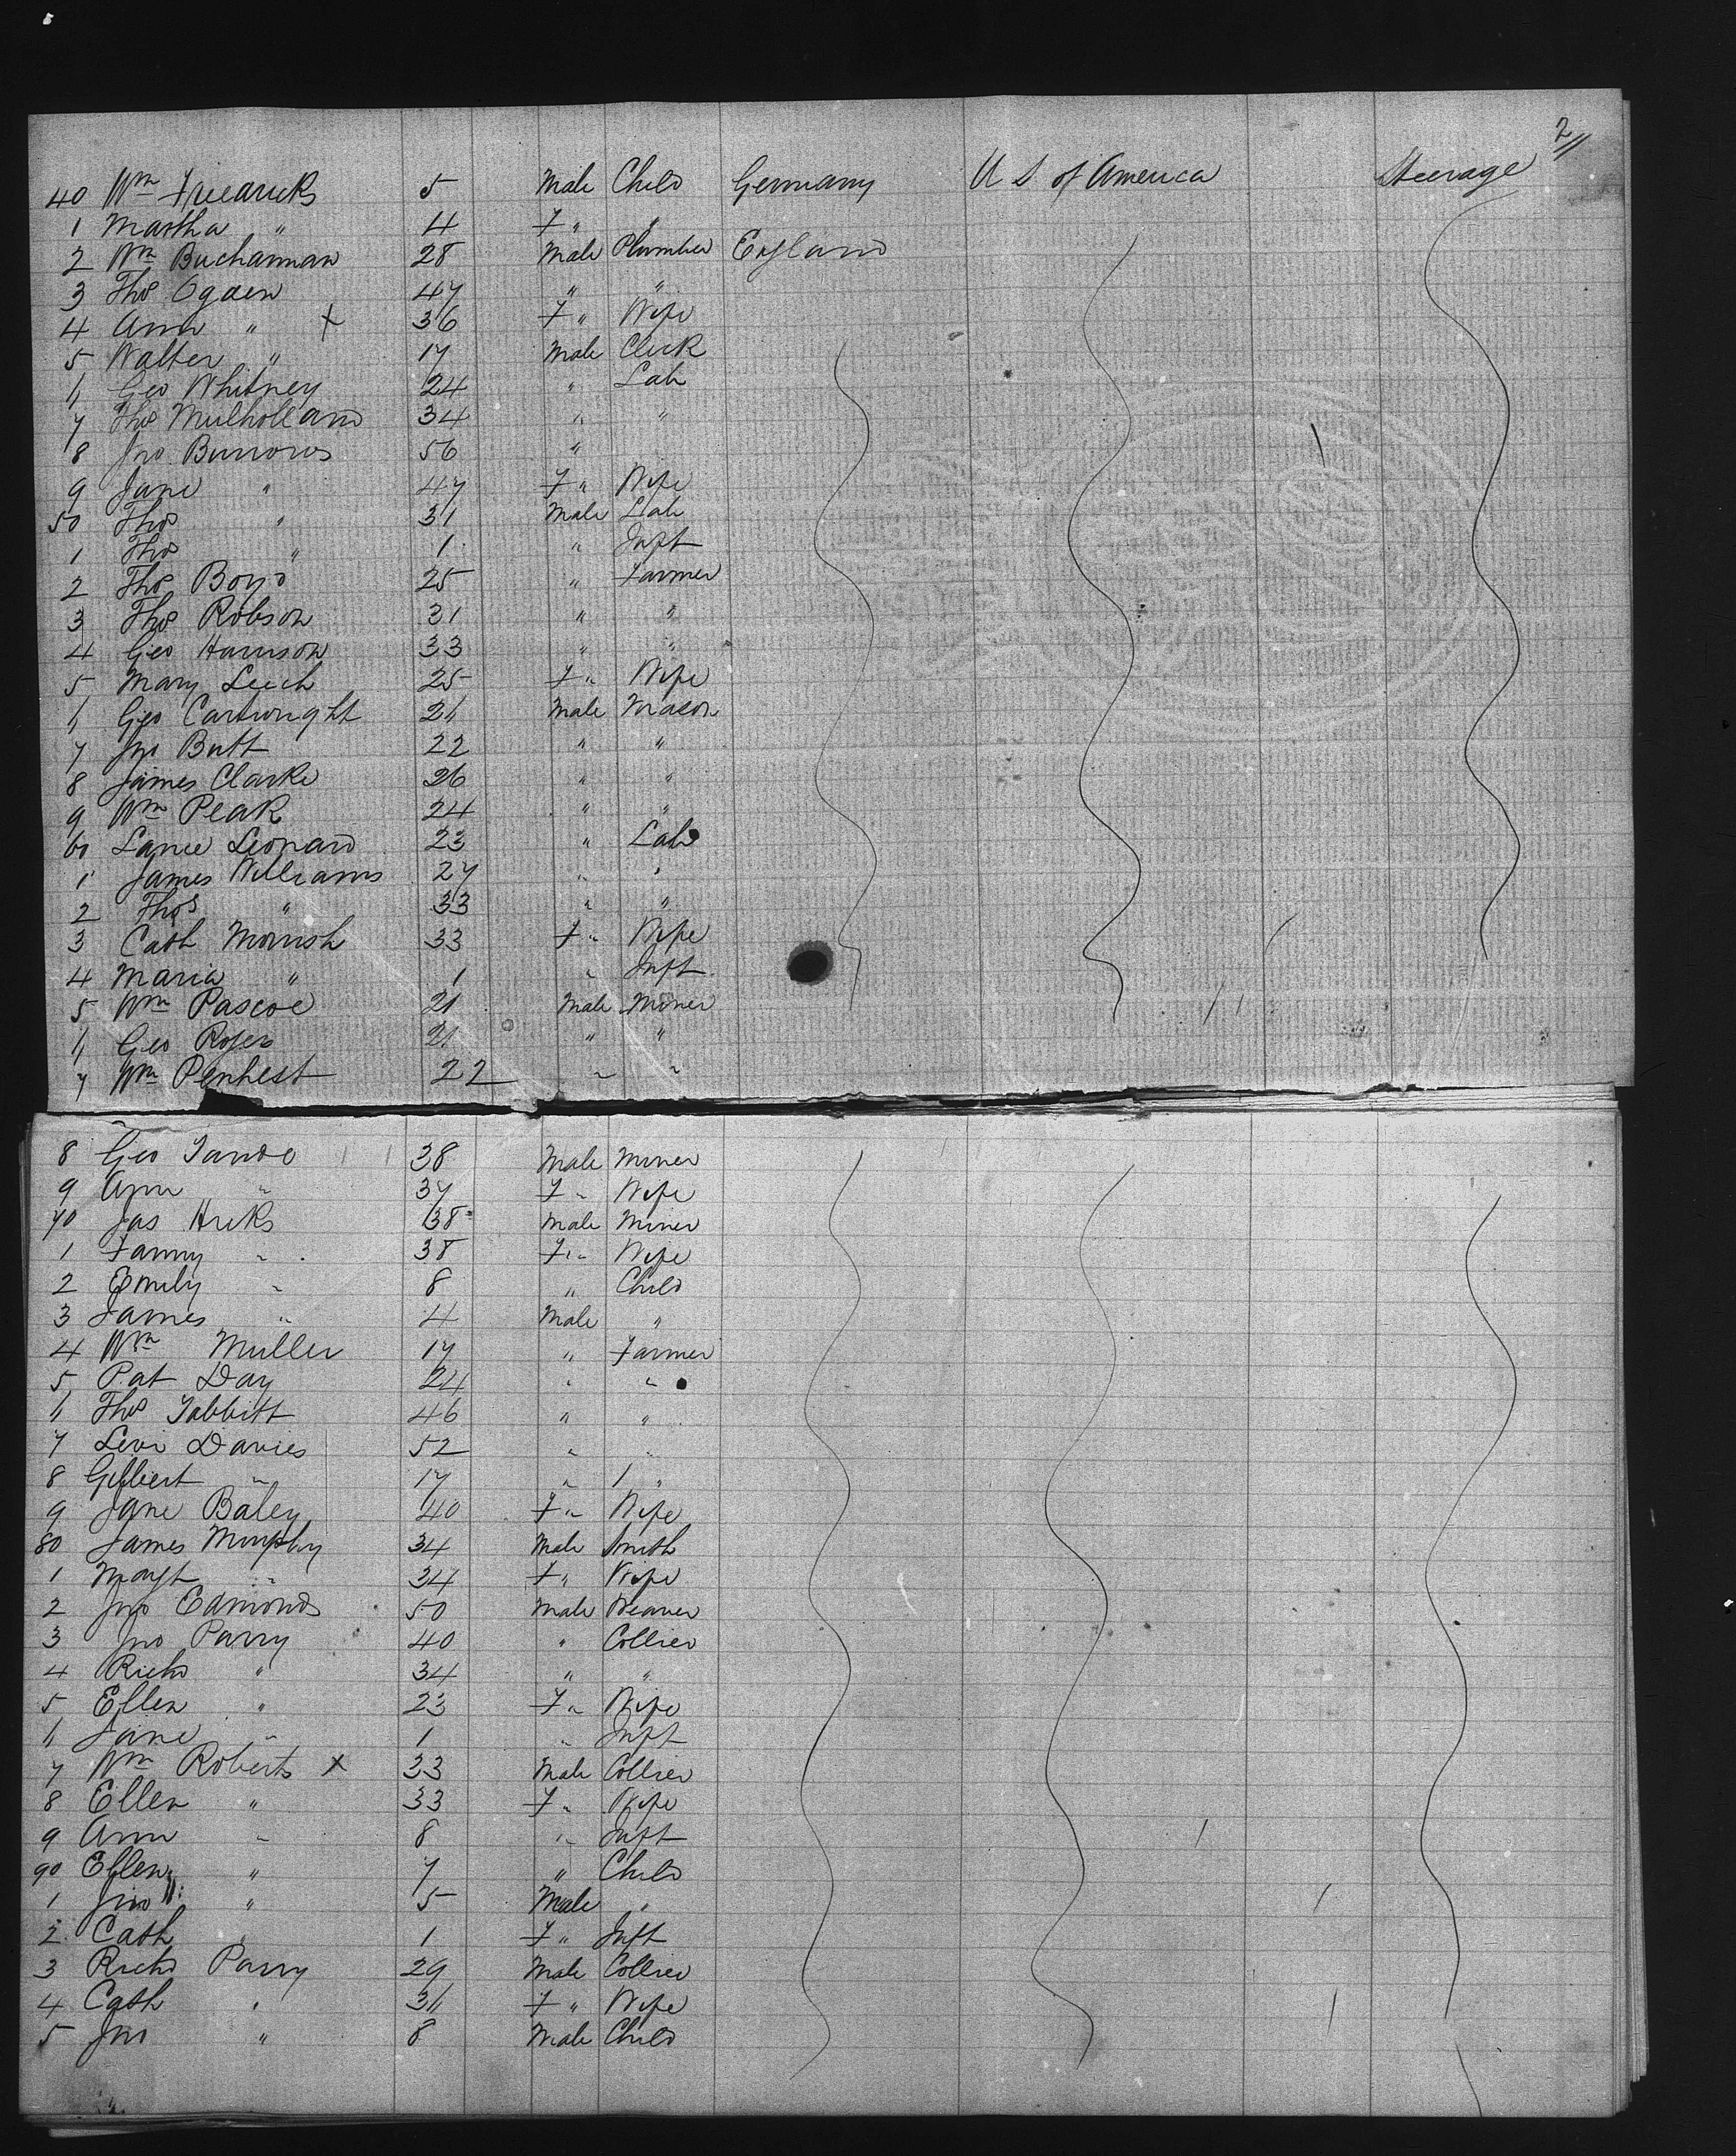 2 //
40 Wm Fredaricks 5 Male Child Germany U S of America Steerage
1 Martha " 4 F " "
2 Wm Buchannan 28 Male Plumber England
3 Thos Ogden 47 " "
4 Ann " x 36 F " Wife
5 Walter " 17 Male Clerk
6 Geo Whitney 24 " Lab
7 Thos Mulholland 34 " "
8 Jno Burrows 56 "
9 Jane " 47 F " Wife
50 Thos " 31 Male Lab
1 Thos " 1 " Inft
2 Thos Boyd 25 " Farmer
3 Thos Robson 31 " "
4 Geo Harrison 33 " "
5 Mary Leech 25 F " Wife
6 Geo Cartwright 21 Male Mason
7 Jno Butt 22 " "
8 James Clarke 26 " "
9 Wm Peak 24 " "
60 Lance Leonard 23 " Lab
1 James Williams 27 " "
2 Thos " 33 " "
3 Cath Morrish 33 F " Wife
4 Maria " 1 " Inft
5 Wm Pascoe 21 Male Miner
6 Geo Rogers 21 " "
7 Wm Penhest 22 " "
8 Geo 38 Male Miner
9 Ann " 37 F " Wife
70 Jas Hicks 38 Male Miner
1 Fanny " 38 F " Wife
2 Emily " 8 " Child
3 James " 4 Male "
4 Wm Muller 17 " Farmer
5 Pat Day 24 " "
6 Thos Tabbitt 46 " "
7 Levi Davies 52 " "
8 Gilbert " 17 " "
9 Jane Baley 40 F " Wife
80 James Murphy 34 Male Smith
1 Magt " 34 F " Wife
2 Jno Edmonds 50 Male Weaver
3 Jno Parry 40 " Collier
4 Richd " 34 " "
5 Ellen " 23 F " Wife
6 Jane " 1 " Inft
7 Wm Roberts x 33 Male Collier
8 Ellen " 33 F " Wife
9 Ann " 8 " Inft
90 Ellen " 7 " Child
1 Jno " 5 Male "
2 Cath " 1 F " Inft
3 Richd Parry 29 Male Collier
4 Cath " 36 F " Wife
5 Jno " 8 Male Child